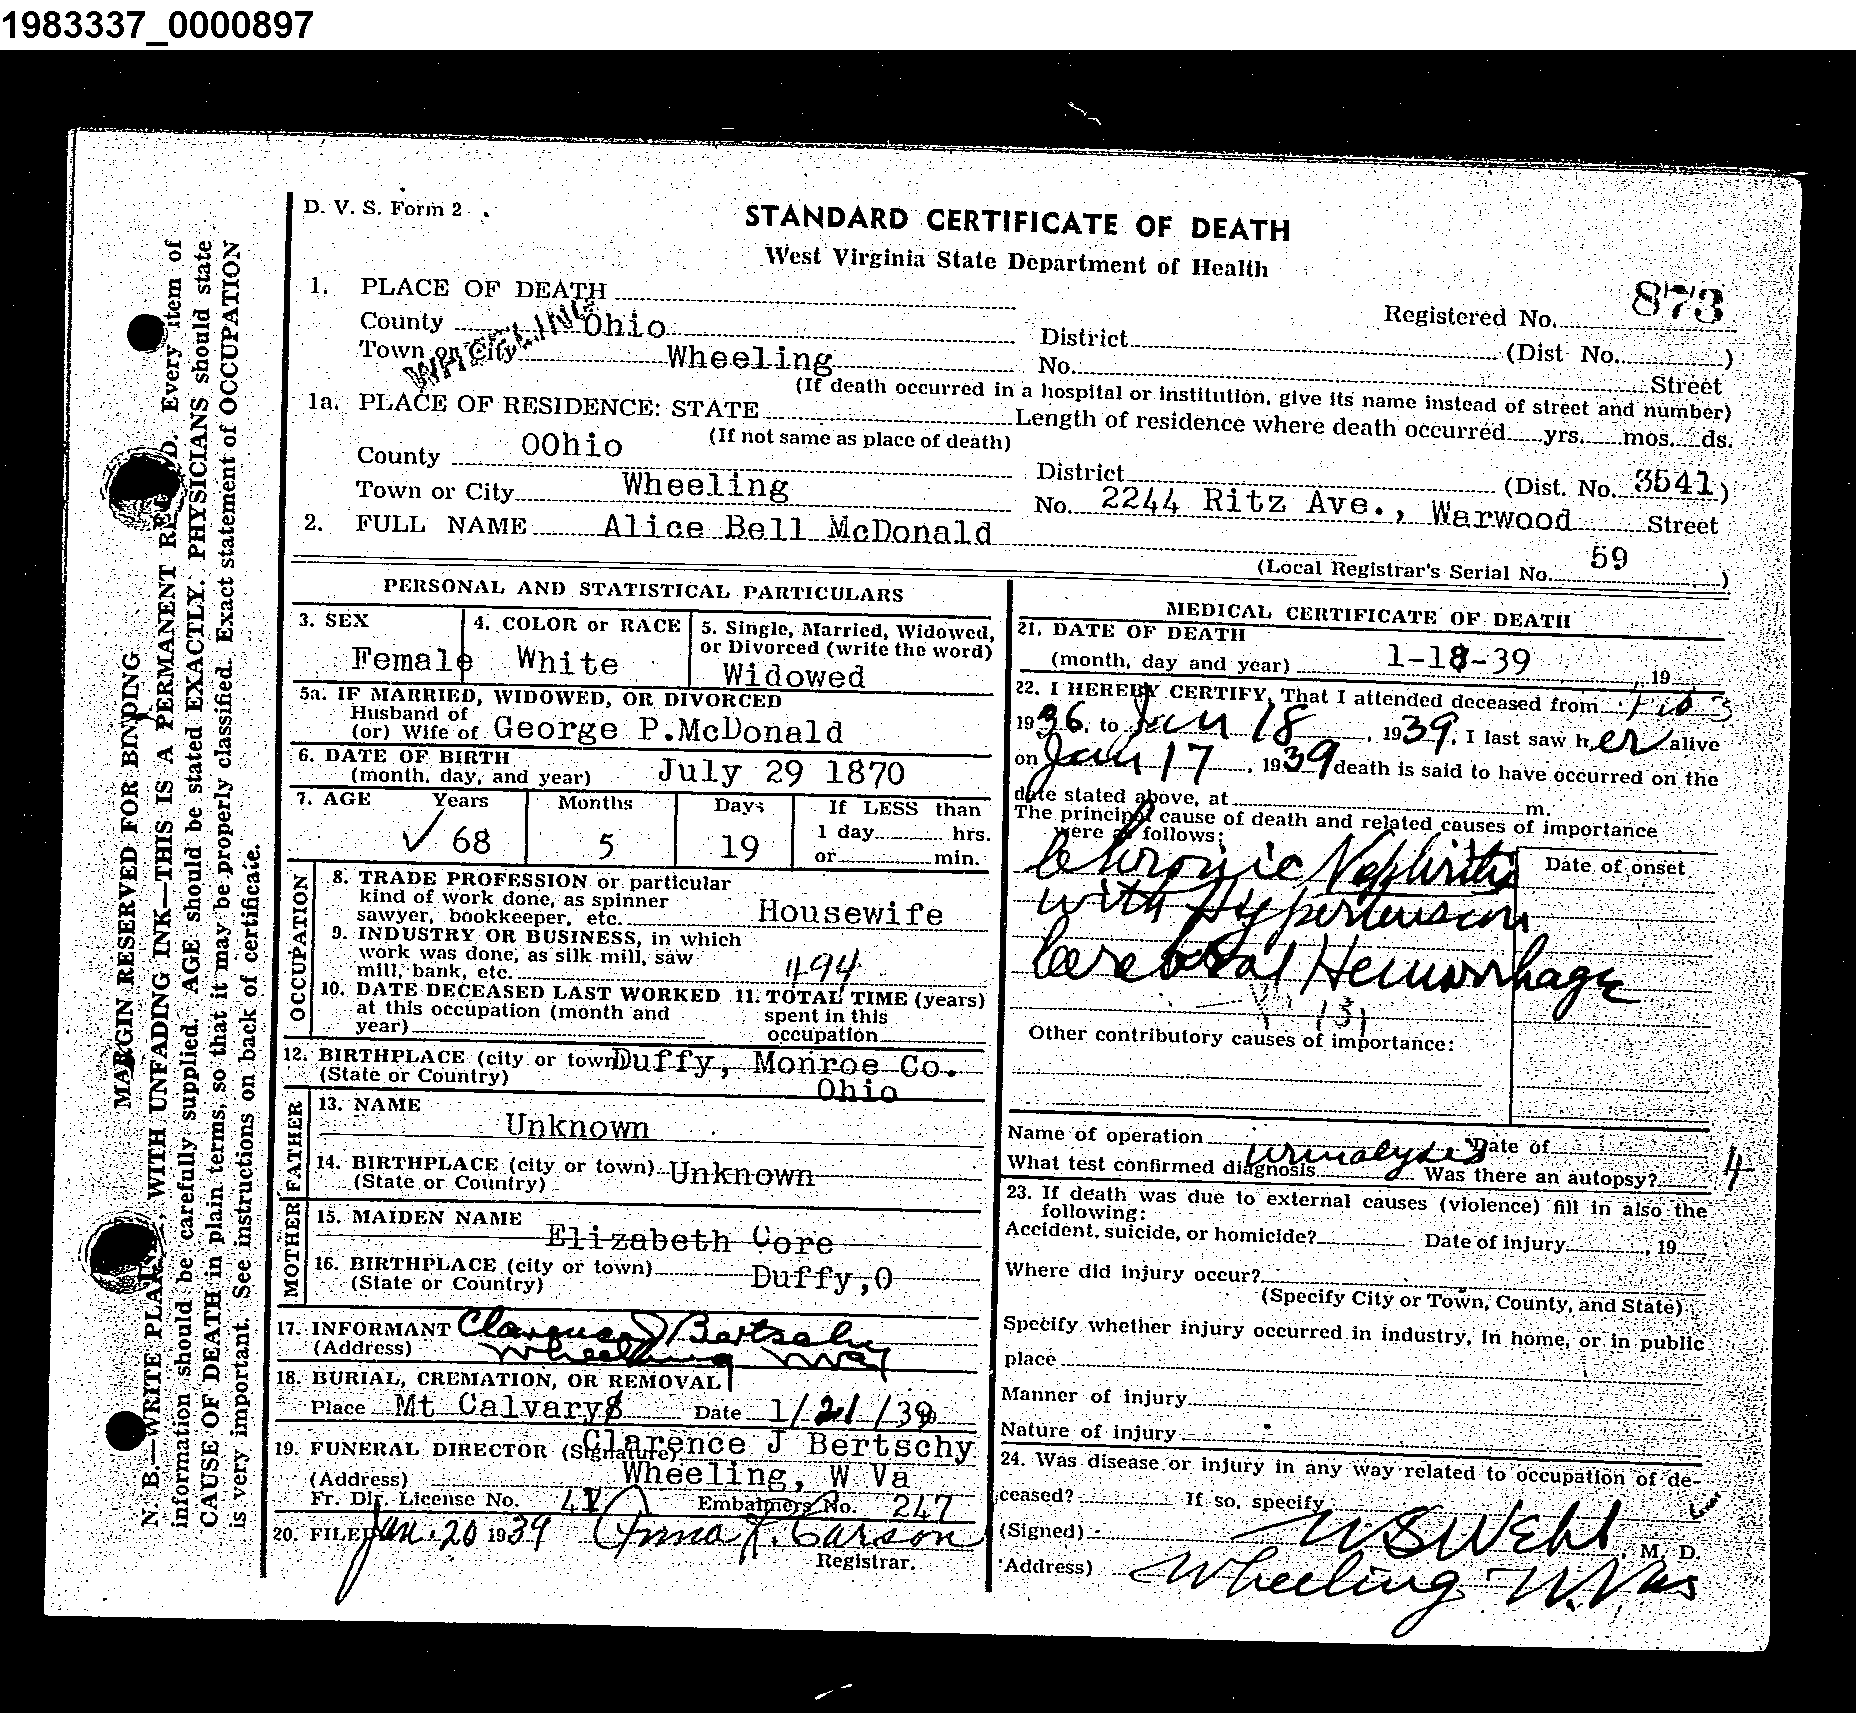 1983337_0000897
D. V. S. Form 2
STANDARD CERTIFICATE OF DEATH
West Virginia State Department of Health
873
1. PLACE OF DEATH
Registered No.
County Ohio
WHEELING
District (Dist No. )
Town or City Wheeling
No. Street
(If death occurred in a hospital or institution, give its name instead of street and number)
1a. PLACE OF RESIDENCE: STATE Length of residence where death occurred yrs. mos. ds.
(If not same as place of death)
County OOhio
District (Dist. No. 3541)
Town or City Wheeling
No. 2244 Ritz Ave., Warwood Street
2. FULL NAME Alice Bell McDonald
(Local Registrar's Serial No. 59 )
PERSONAL AND STATISTICAL PARTICULARS
3. SEX Female
4. COLOR or RACE White
5. Single, Married, Widowed, or Divorced (write the word) Widowed
5a. IF MARRIED, WIDOWED, OR DIVORCED
Husband of
(or) Wife of George P.McDonald
6. DATE OF BIRTH
(month, day, and year) July 29 1870
7. AGE Years Months Days If LESS than
✓ 68 5 19 1 day hrs.
or min.
OCCUPATION
8. TRADE PROFESSION or particular
kind of work done, as spinner
sawyer, bookkeeper, etc. Housewife
9. INDUSTRY OR BUSINESS, in which
work was done, as silk mill, saw
mill, bank, etc. 494
10. DATE DECEASED LAST WORKED
at this occupation (month and
year)
11. TOTAL TIME (years)
spent in this
occupation
12. BIRTHPLACE (city or town) Duffy, Monroe Co.
(State or Country) Ohio
FATHER
13. NAME
Unknown
14. BIRTHPLACE (city or town) Unknown
(State or Country)
MOTHER
15. MAIDEN NAME
Elizabeth Core
16. BIRTHPLACE (city or town) Duffy,O
(State or Country)
17. INFORMANT Clarence J Bertschy
(Address) Wheeling W Va
18. BURIAL, CREMATION, OR REMOVAL
Place Mt Calvary Date 1/21/39
19. FUNERAL DIRECTOR (Signature) Clarence J Bertschy
(Address) Wheeling, W Va
Fr. Dir. License No. 41 Embalmers No. 247
20. FILED Jan. 20 1939 Anna J. Carson
Registrar.
MEDICAL CERTIFICATE OF DEATH
21. DATE OF DEATH
(month, day and year) 1-18-39 , 19
22. I HEREBY CERTIFY, That I attended deceased from Feb 3
1936, to Jan 18, 1939, I last saw her alive
on Jan 17, 1939 death is said to have occurred on the
date stated above, at m.
The principal cause of death and related causes of importance
were as follows:
Date of onset
Chronic Nephritis
with Hypertension
Cerebral Hemorrhage
131
Other contributory causes of importance:
Name of operation Date of
What test confirmed diagnosis urinalysis Was there an autopsy?
4
23. If death was due to external causes (violence) fill in also the
following:
Accident, suicide, or homicide? Date of injury , 19
Where did injury occur?
(Specify City or Town, County, and State)
Specify whether injury occurred in industry, in home, or in public
place
Manner of injury
Nature of injury
24. Was disease or injury in any way related to occupation of de-
ceased? If so, specify
(Signed) , M. D.
(Address) Wheeling W. Va
MARGIN RESERVED FOR BINDING
N. B.—WRITE PLAINLY, WITH UNFADING INK—THIS IS A PERMANENT RECORD. Every item of
information should be carefully supplied. AGE should be stated EXACTLY. PHYSICIANS should state
CAUSE OF DEATH in plain terms, so that it may be properly classified. Exact statement of OCCUPATION
is very important. See instructions on back of certificate.